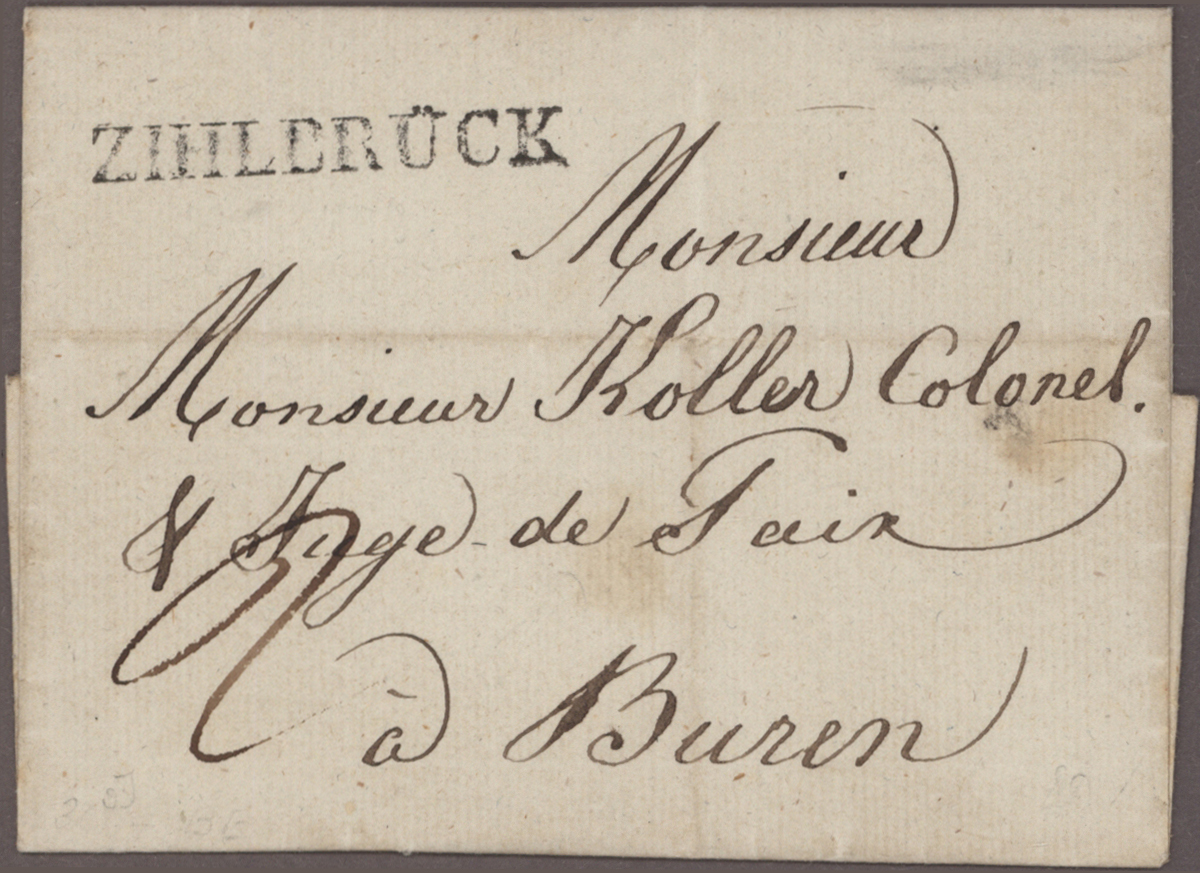 ZIHLBRÜCK
Monsieur
Monsieur Koller Colonel.
& Juge de Paix
à Buren